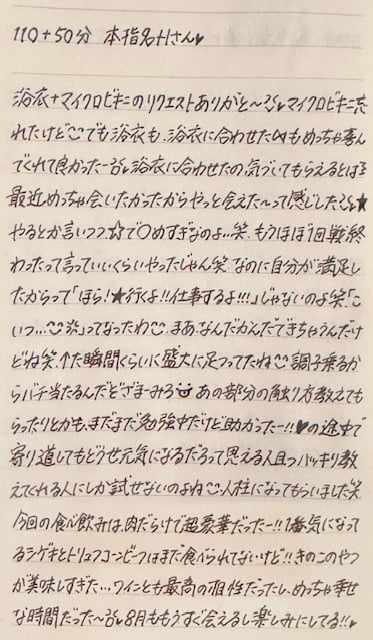 110+50分 本指名Hさん♥
浴衣+マイクロビキニのリクエストありがと〜 マイクロビキニ忘
れたけど でも浴衣も、浴衣に合わせた も めっちゃ喜ん
でくれて良かったー 浴衣に合わせたの気づいてもらえるとは
最近めっちゃ会いたかったからやっと会えた〜って感じした ★
やるとか言いつつ ☆で〇めすぎなのよ…笑 もうほぼ1回戦終
わったって言っていいくらいやったじゃん笑 なのに自分が満足し
たからって「ほら!★行くよ!!仕事するよ!!!」じゃないのよ笑「こ
いつ… 」ってなったわ まあ、なんだかんだできちゃうんだけ
どね笑 た瞬間くらいに盛大に足つってたね 調子乗るか
らバチ当たるんだどざまーみろ あの部分の触り方教えても
らったりとかも、まだまだ勉強中だけど助かったー!!♥の途中で
寄り道してもどうせ元気になるだろって思える人且つハッキリ教
えてくれる人にしか試せないのよね 人柱になってもらいました笑
今回の食べ飲みは肉だらけで超豪華だったー!! 気になって
る とトリュフコンビーフはまだ食べられてないけど!!きのこのやつ
が美味しすぎた…ワインとも最高の相性だったし、めっちゃ幸せ
な時間だった〜 8月ももうすぐ会えるし楽しみにしてる!!♥